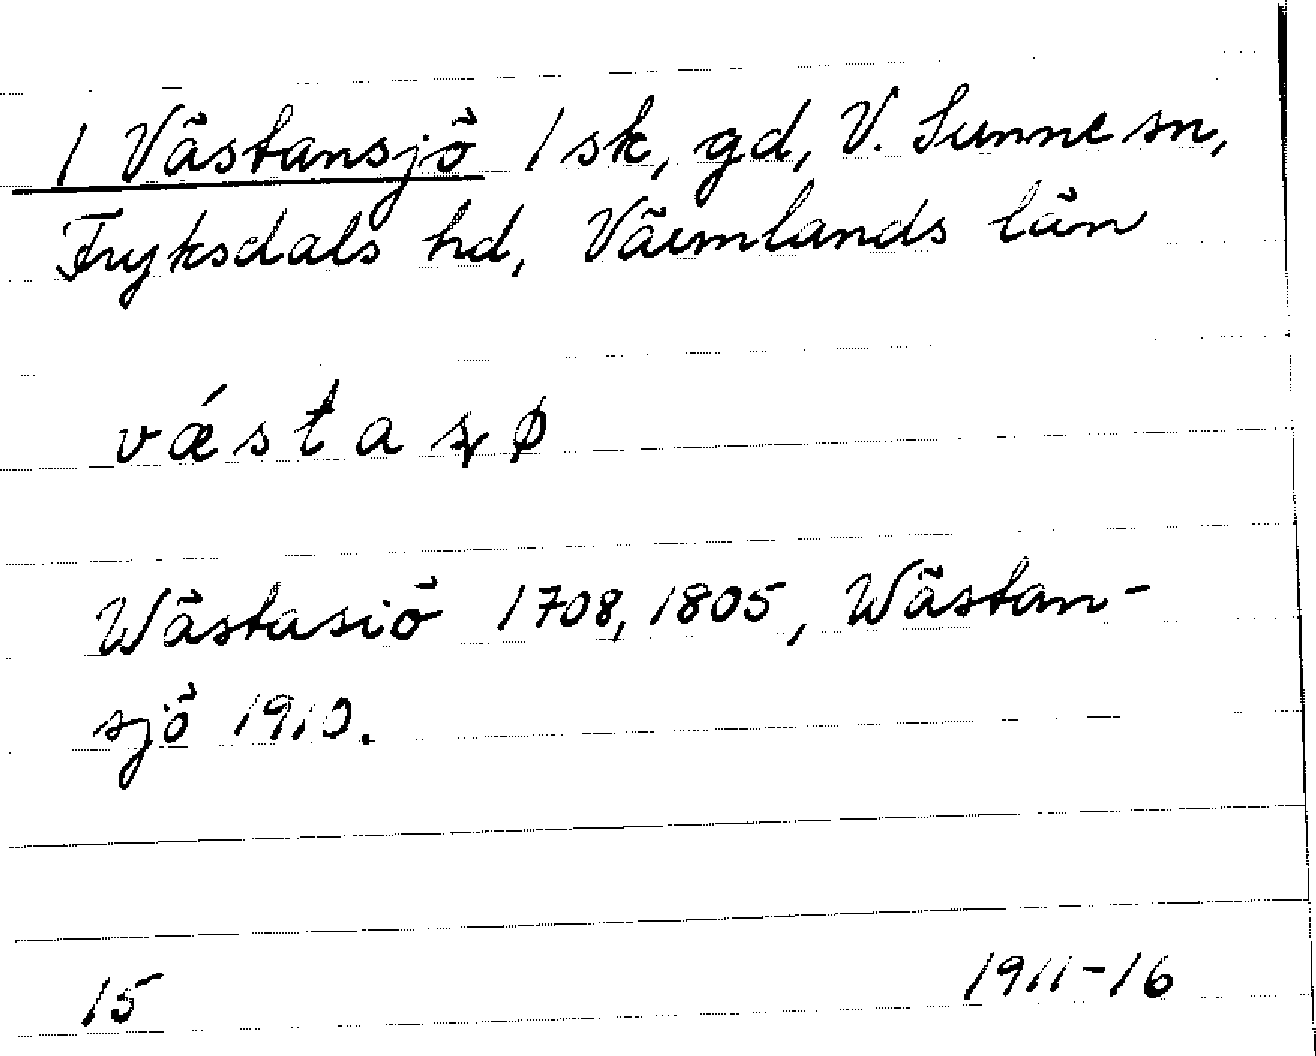 1 Västansjö 1 sk, gd, V. Sunne sn,
Fryksdals hd, Värmlands län
vǽsta ʂø
Wästasiö 1708, 1805, Wästan-
sjö 1910.
15 1911-16